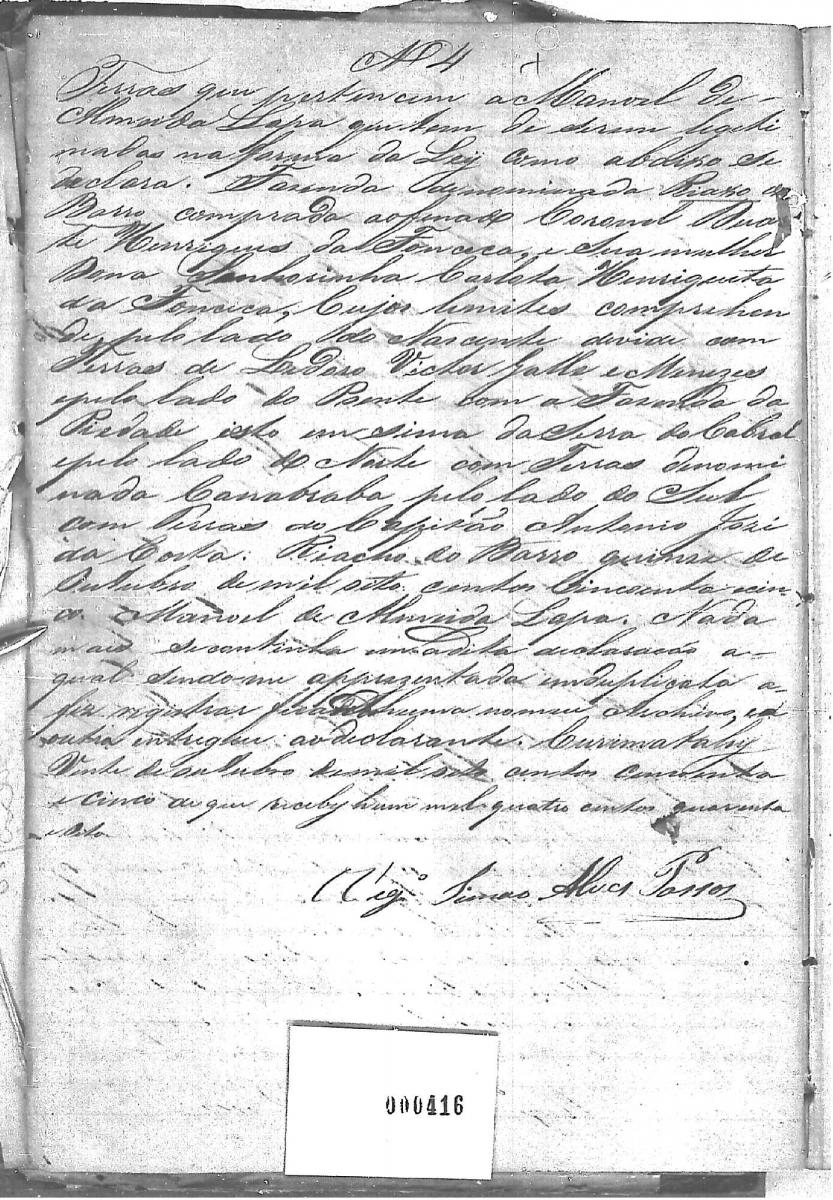 N 4
Terras que pertencem a Manoel de
Almeida Lapa que tem de serem legeti
madas na forma da Ley como abaixo se
declara. Fazenda denominada Riaxo do
Barro comprada ao finado Coronel Dua
te Henriques da Fonceca, e sua mulher
Dona Senhorinha Carlota Henriqueta
da Fonceca, Cujos lemites comprehen
de pelo lado do Nascente devide com
Terras de Ladaro Victor Salle e Menezes
e pelo lado do Poente com a Fazenda da
Piedade isto em sima da Serra do Cabral
e pelo lado do Norte com Terras denomi
nada Canabraba pelo lado do Sul
com Terras do Capitão Antonio Jozé
da Costa. Riacho do Barro quinze de
Outubro de mil oito centos Cincoenta e cin
co. Manoel de Almeida Lapa. Nada
mais se continha em a dita declaração a
qual sendo me apprezentada em duplicata a
fiz registrar huma no meu Archivo, e a
outra entreguei ao declarante. Curimatahy
Vinte de outubro de mil oito centos cincoenta
e cinco de que receby hum mil quatro centos quarenta
e oito
Vigº Simao Alves Passos
000416